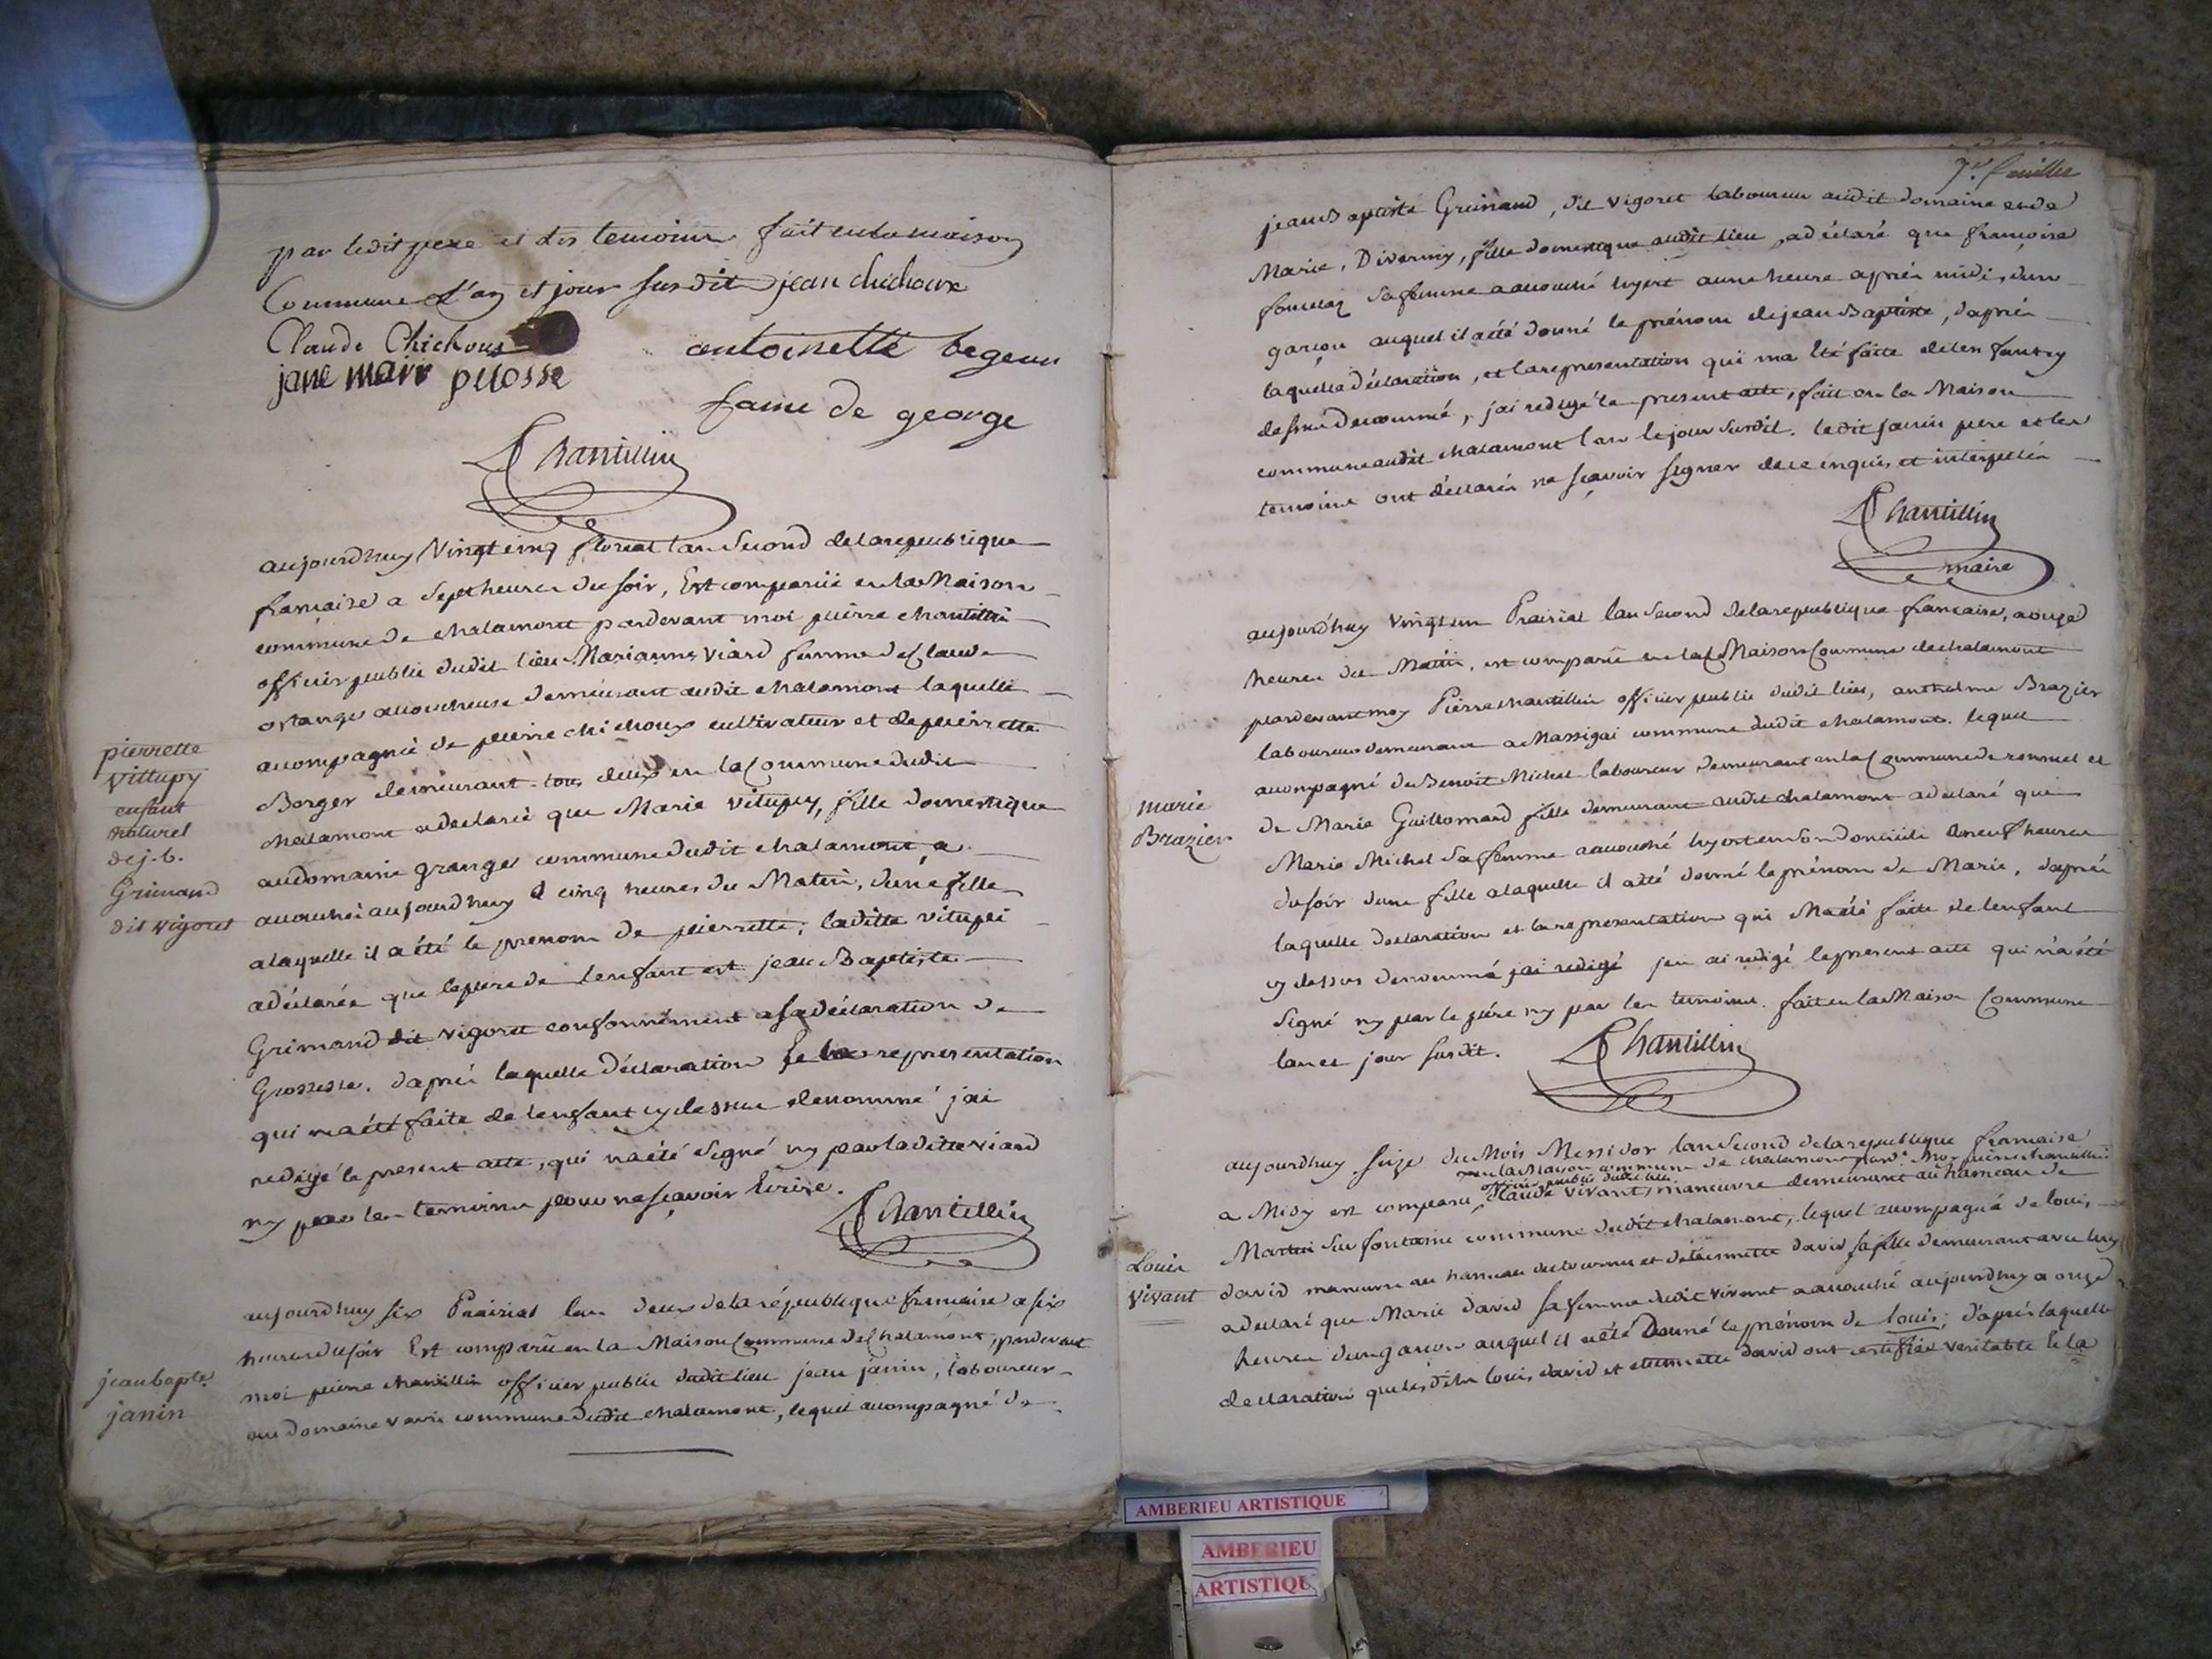 par ledit pere et des temoins fait en la maison
Commune L'an et jour susdit jean chichoux
Claude Chichoux
antoinette begeun
jane marr pelosse
fame de george
Chantillin
aujourdhuy Vingt cinq floreal lan Second de la republique
francaise a Sept heures du soir, Est comparüe en la Maison
commune de chalamont pardevant moi pierre chantillin
officier public dudit lieu Marianne Viard femme de Claude
ostange accoucheuse demeurant audit chalamont laquelle
acompagnée de pierre chichoux cultivateur et de pierrette
Borger demeurant tous deux en la Commune dudit
chalamont a declaré que Marie vitupey, fille domestique
au domaine granges commune dudit chalamont, a
accouchée aujourdhuy a cinq heures du Matin, d'une fille
a laquelle il a été le prenom de pierrette, laditte vitupei
a déclarée que le pere de l'enfant est jean Baptiste
Grimand dit vigoret conformément a sa déclaration de
Grossesse. d'après laquelle déclaration Et la representation
qui m'a été faite de l'enfant cy dessus denommé j'ai
redigé le present acte, qui n'a été signé ny par laditte viard
ny par les temoins pour ne sçavoir Ecrire.
Chantillin
pierrette
vittupy
enfant
naturel
de j. b.
Grimand
dit vigoret
aujourdhuy six Prairial l'an deux de la république francaise a six
heures du soir Est comparü en la Maison Commune de Chalamont, pardevant
moi pierre chantillin officier public dudit lieu jean janin, laboureur
au domaine varin commune dudit chalamont, lequel acompagné de
jean bapte.
janin
7e. feuillet
jean Baptiste Grimand, dit vigoret laboureur audit domaine et de
Marie, Divorny, fille domestique audit lieu, a déclaré que francoise
sa femme a accouché hyert a une heure après midi, d'un
garçon auquel il a été donné le prénom de jean Baptiste, d'après
laquelle déclaration, et la representation qui m'a été faite de l'enfant cy
dessus denommé, j'ai redigé le present acte, fait en la Maison
commune audit chalamont l'an le jour susdit. ledit janin pere et les
temoins ont déclarés ne sçavoir signer de ce enquis et interpellés
Chantillin
maire
aujourd'huy vingt un Prairial lan Second de la republique francaise, a onze
heures du Matin, est comparü en la Maison Commune de chalamont
pardevant moy Pierre chantillin officier public dudit lieu, anthelme Brazier
laboureur demeurant a Massigai commune dudit chalamont. lequel
acompagné de Benoit Michel laboureur demeurant en la Commune de ronzuel et
de Marie Guillomard fille demeurant audit chalamont a declaré que
Marie Michel sa femme a accouché hyert en son domicile a neuf heures
du soir d'une fille a laquelle il a été donné le prénom de Marie, d'après
laquelle declaration et la representation qui M'a été faite de l'enfant
cy dessus denommé jai redigé j'en ai redigé le present acte qui n'a été
Signé ny par le pére ny par les temoins. fait en la Maison Commune
lan et jour susdit.
Chantillin
marie
Brazier
aujourdhuy seize du Mois Messidor lan Second de la republique francaise
en la Maison commune de chalamont pardt. Moy pierre chantillin
officier public dudit lieu
a Midy est comparu, Claude Vivant, manœuvre demeurant au hameau de
Martin Sur fontaine commune dudit chalamont, lequel acompagné de louis
david manœuvre au hameau du tournu et d'etiennette david sa fille demeurant avec luy
a declaré que Marie david sa femme dudit vivant a accouché aujourdhuy a onze
heures d'un garçon auquel il a été Donné le prénom de louis; d'après laquelle
declaration que lesdits louis david et etiennette david ont certifiée veritable et la
Louis
vivant
AMBERIEU ARTISTIQUE
AMBERIEU
ARTISTIQU